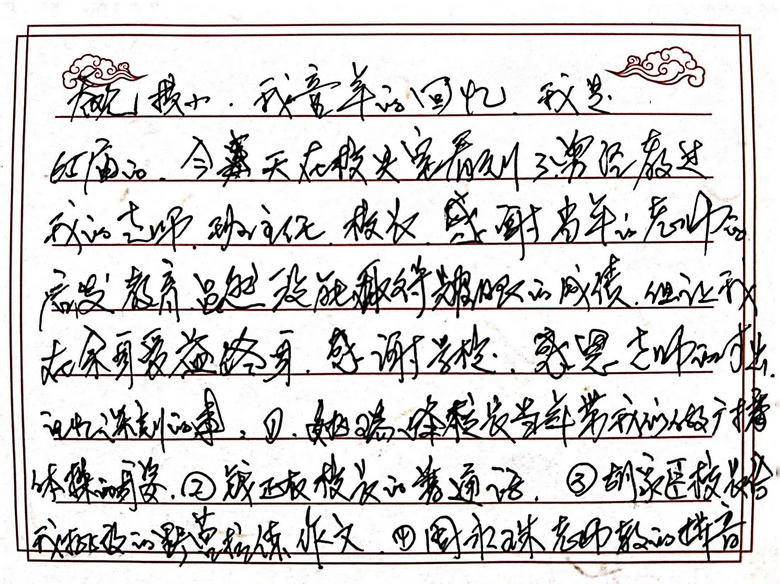 我童年的回忆、我是
红庙的、今天在校史室看到了曾经教过
我的老师、班主任、校长、感谢当年的老师的
启发教育、虽然没能取得辉煌的成绩、但让我
在余哥受益终身、感谢学校、感恩老师的付出、
记忆深刻的事：①、徐校长当年带我们做广播
体操的身姿、②钱正板校长的普通话、③胡家臣校长给
我批改的野营拉练作文、④周永珠老师教的拼音